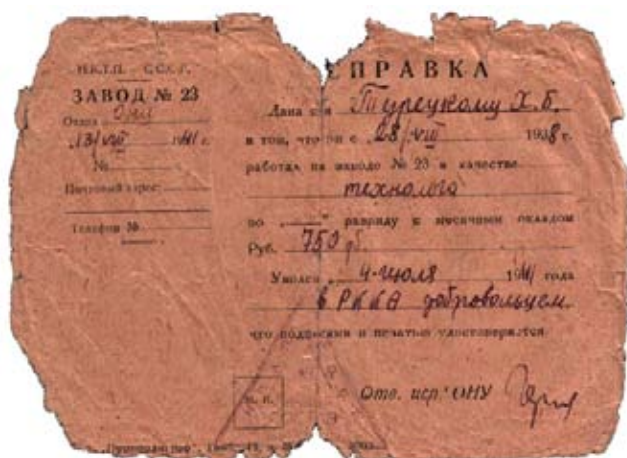 Н.К.Т.П. - С.С.С.Р.
ЗАВОД № 23
Отдел
13/VIII 1941 г.
№
Почтовый адрес:
Телефон №
СПРАВКА
Дана сия Турецкому Х.Б.
в том, что он с 28/VIII 1938 г.
работал на заводе № 23 в качестве
технолога
по „ — “ разряду с месячным окладом
Руб. 750 р.
Уволен 4-июля 1941 года
в РККА добровольцем.
что подписями и печатью удостоверяется
М. П.
Отв. иср. ОНУ